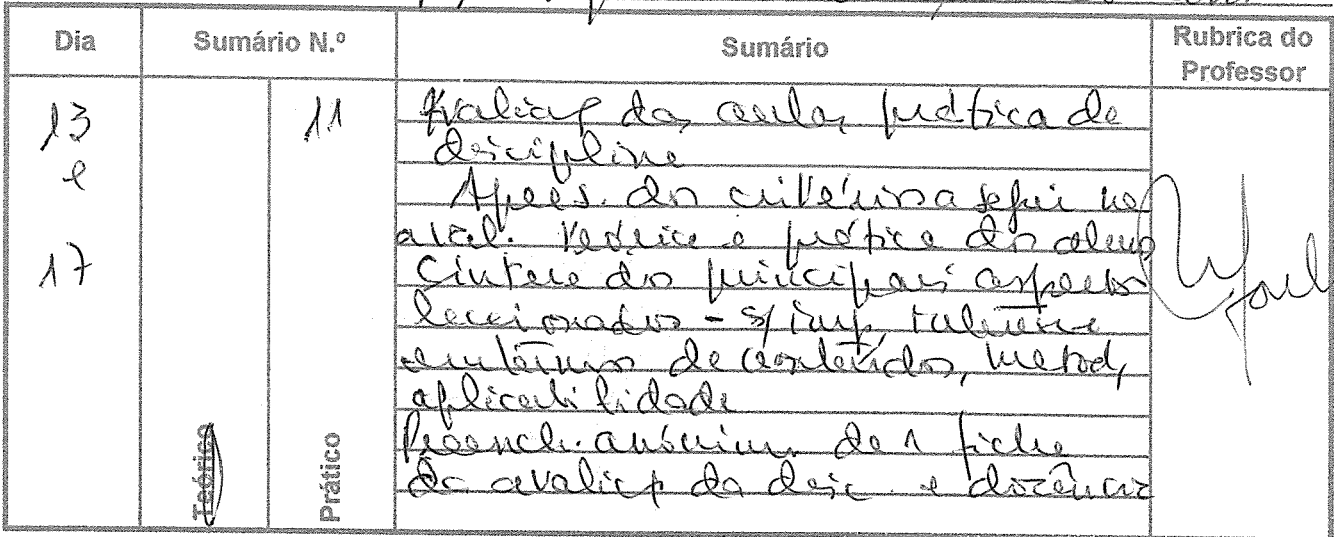 Dia Sumário N.º Sumário Rubrica do Professor
13 e 17
11
Teórico
Prático
Avaliaç das aulas prática da
disciplina
Apres. dos critérios a seguir na
aval. teórica e prática dos alunos
Síntese dos principais aspectos
leccionados - s/ imp.
em termos de conteúdos, metod,
aplicabilidade
Preench. anónim. de 1 ficha
de avaliaç da disc. e docência